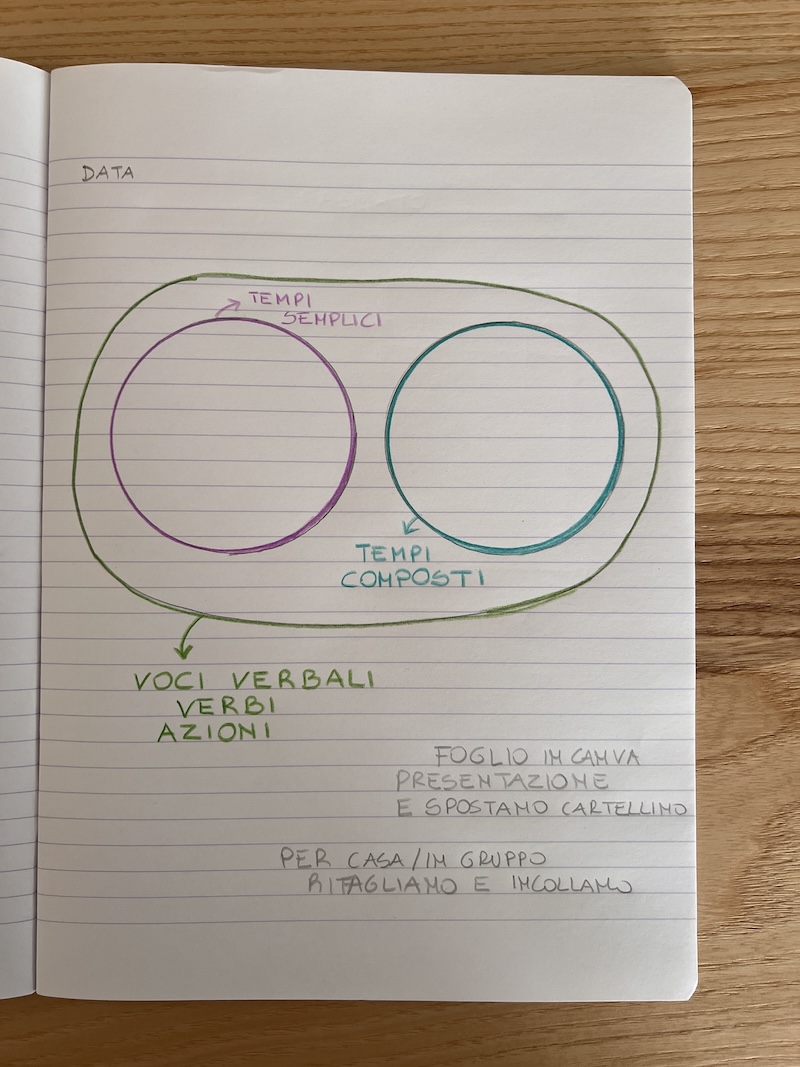 DATA
TEMPI
SEMPLICI
TEMPI
COMPOSTI
VOCI VERBALI
VERBI
AZIONI
FOGLIO IN CANVA
PRESENTAZIONE
E SPOSTANO CARTELLINO
PER CASA/IN GRUPPO
RITAGLIAMO E INCOLLANO